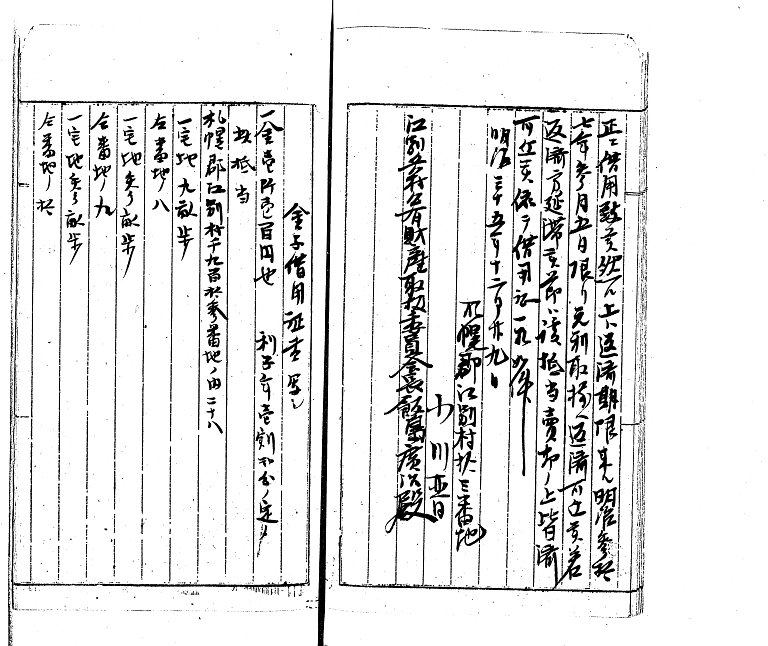 正ニ借用致候然ル上ハ返済期限来ル明治参拾
七年参月五日限リ元利取揃ヘ返済可仕候若
返済方延滞候節ハ該抵当売却ノ上皆済
可仕候依テ借用証一札如件
明治三十五年十二月廿九日
札幌郡江別村拾三番地
小川
江別兵村公有財産取扱委員会長飯島廣次殿
金子借用証書写シ
一金壱阡壱百円也 利子年壱割弐分ノ定メ
此抵当
札幌郡江別村千九百拾参番地ノ内二十八
一宅地九畝歩
仝番地ノ八
一宅地参畝歩
仝番地ノ九
一宅地参畝歩
仝番地ノ拾